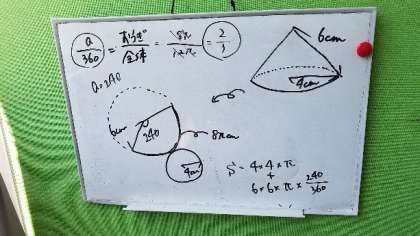 a/360 = おうぎ/全体 = 8π/12π = 2/3
a=240
6cm
4cm
6cm
240
8πcm
4cm
S = 4×4×π
+
6×6×π× 240/360